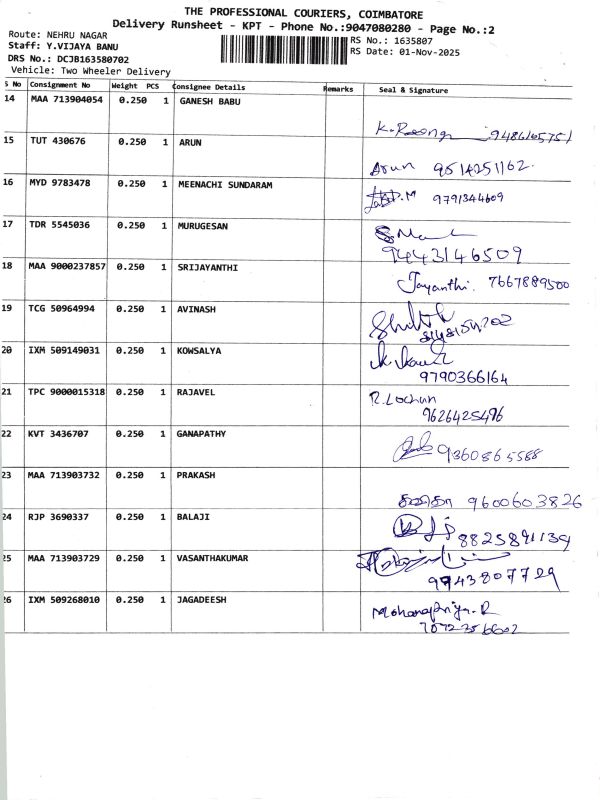 THE PROFESSIONAL COURIERS, COIMBATORE
Delivery Runsheet - KPT - Phone No.:9047080280 - Page No.:2
Route: NEHRU NAGAR
RS No.: 1635807
Staff: Y.VIJAYA BANU
RS Date: 01-Nov-2025
DRS No.: DCJB163580702
Vehicle: Two Wheeler Delivery
S No Consignment No Weight PCS Consignee Details Remarks Seal & Signature
14 MAA 713904054 0.250 1 GANESH BABU
15 TUT 430676 0.250 1 ARUN
Arun 9514251162.
16 MYD 9783478 0.250 1 MEENACHI SUNDARAM
9791344609
17 TDR 5545036 0.250 1 MURUGESAN
9443146509
18 MAA 9000237857 0.250 1 SRIJAYANTHI
Jayanthi. 7667889500
19 TCG 50964994 0.250 1 AVINASH
20 IXM 509149031 0.250 1 KOWSALYA
9790366164
21 TPC 9000015318 0.250 1 RAJAVEL
R. Lochan
9626425496
22 KVT 3436707 0.250 1 GANAPATHY
9360865588
23 MAA 713903732 0.250 1 PRAKASH
9600603826
24 RJP 3690337 0.250 1 BALAJI
8825891139
25 MAA 713903729 0.250 1 VASANTHAKUMAR
9743807729
26 IXM 509268010 0.250 1 JAGADEESH
Mohanapriya. R